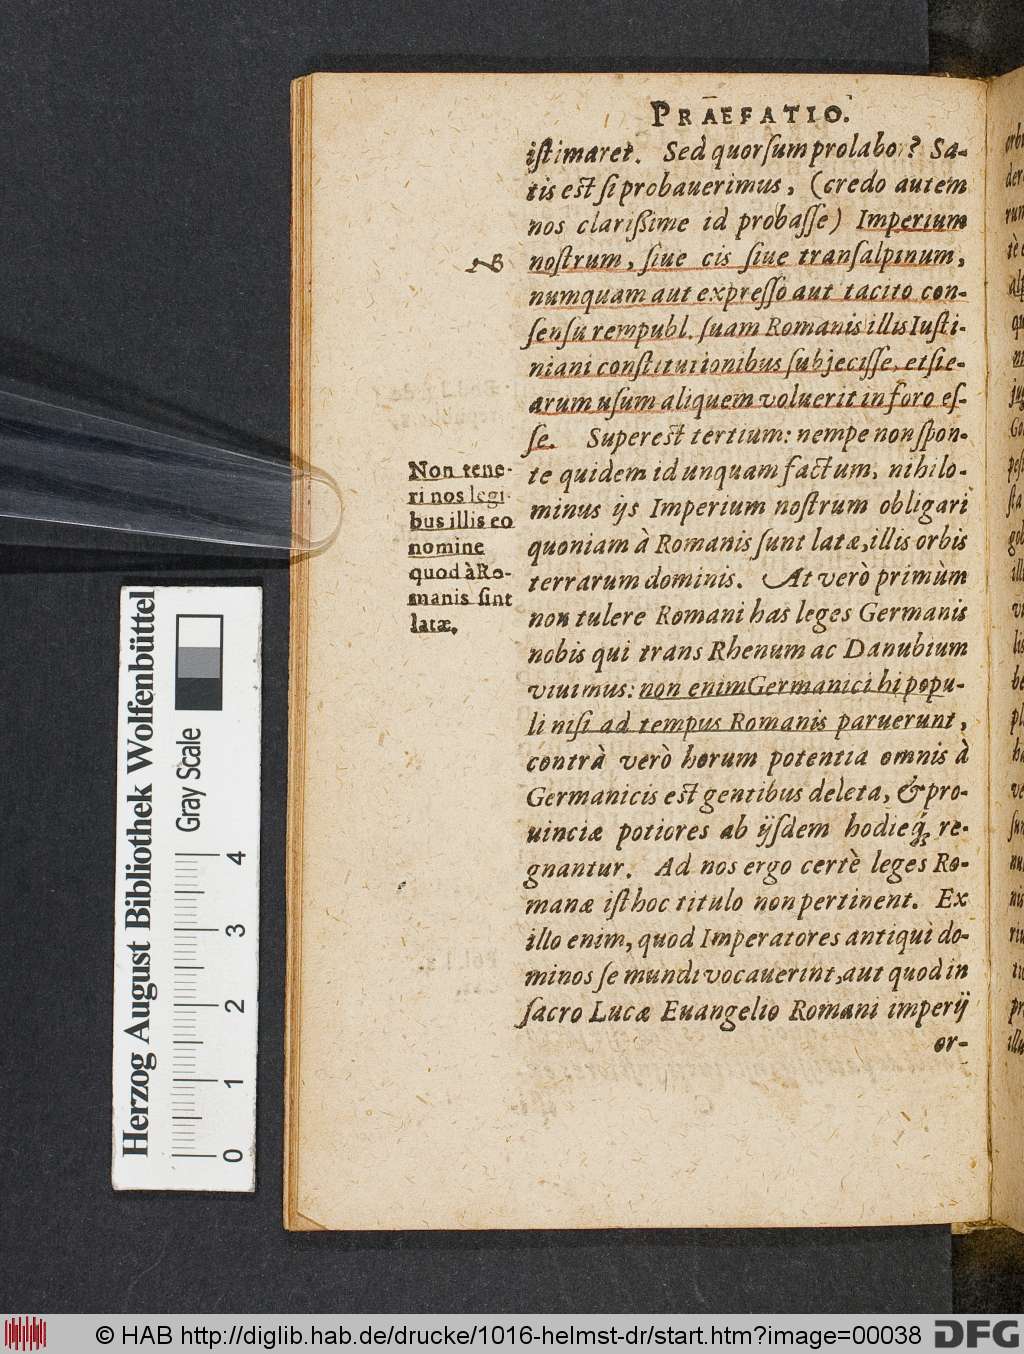 PRAEFATIO.
iſtimaret. Sed quorſum prolabor? Sa-
tis est ſi probauerimus, (credo autem
nos clarißime id probaſſe) Imperium
NB
noſtrum, ſiue cis ſiue tranſalpinum,
numquam aut expreſſo aut tacito con-
ſenſu rempubl. ſuam Romanis illis Iuſti-
niani conſtitutionibus ſubjeciſſe, etſi e-
arum uſum aliquem voluerit in foro eſ-
ſe. Superest tertium: nempe non ſpon-
te quidem id unquam factum, nihilo-
minus ijs Imperium noſtrum obligari
quoniam à Romanis ſunt latæ, illis orbis
terrarum dominis. At verò primùm
non tulere Romani has leges Germanis
nobis qui trans Rhenum ac Danubium
viuimus: non enim Germanici hi popu-
li niſi ad tempus Romanis paruerunt,
contrà verò horum potentia omnis à
Germanicis est gentibus deleta, & pro-
uinciæ potiores ab ijſdem hodieq́; re-
gnantur. Ad nos ergo certè leges Ro-
manæ iſthoc titulo non pertinent. Ex
illo enim, quod Imperatores antiqui do-
minos ſe mundi vocauerint, aut quod in
ſacro Lucæ Euangelio Romani imperij
or-
Non tene-
ri nos legi-
bus illis eo
nomine
quod à Ro-
manis ſint
latæ.
Herzog August Bibliothek Wolfenbüttel
Gray Scale
4
3
2
1
0
© HAB http://diglib.hab.de/drucke/1016-helmst-dr/start.htm?image=00038
DFG